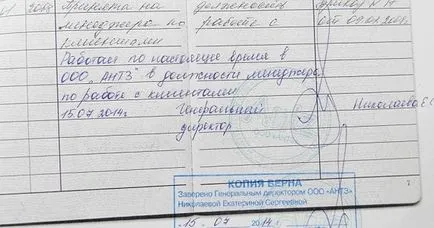 2008 Принята на должность Приказ N 14
менеджера по работе с от 09.01.2008
клиентами
Работает по настоящее время в
ООО "АНТЗ" в должности менеджера
по работе с клиентами
15.07.2014г. Генеральный Николаева Е.С
директор
КОПИЯ ВЕРНА
Заверено Генеральным директором ООО «АНТЗ»
Николаевой Екатериной Сергеевной
15 07 2014 г.
7